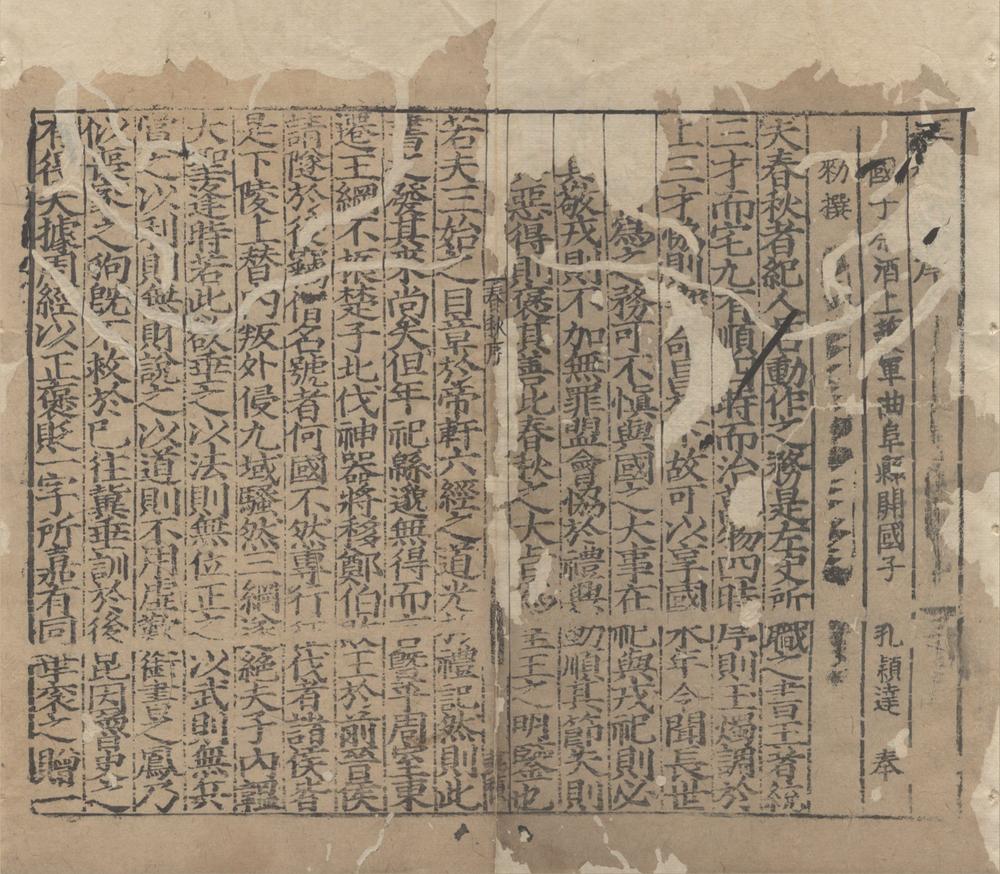 序
國子祭酒上護軍曲阜縣開國子 孔穎達 奉
勑撰
夫春秋者紀人君動作之務是左史所職之書王者統
三才而宅九有順四時而治萬物四時序則玉燭調於
上三才協則 命昌 故可以享國永年令聞長世
為之務可不慎與國之大事在祀與戎祀則必
敬戎則不加無罪盟會協於禮興動順其節失則
惡得則褒其善此春秋之大旨為皇王之明鑒也
春秋序
若夫五始之目章於帝軒六經之道光於禮記然則此
書之發其來尚矣但年祀緜邈無得而言曁乎周室東
遷王綱不振楚子北伐神器將移鄭伯敗王於前晉侯
請隧於後竊僭名號者何國不然專行征伐者諸侯皆
是下陵上替内叛外侵九域騷然三綱遂絕夫子内韞
大聖逢時若此欲垂之以法則無位正之以武則無兵
當之以利則無財說之以道則不用虛歎銜書之鳳乃
似喪家之狗旣不救於已往冀垂訓於後昆因魯史之
有得失據周經以正褒貶一字所嘉有同華袞之贈一